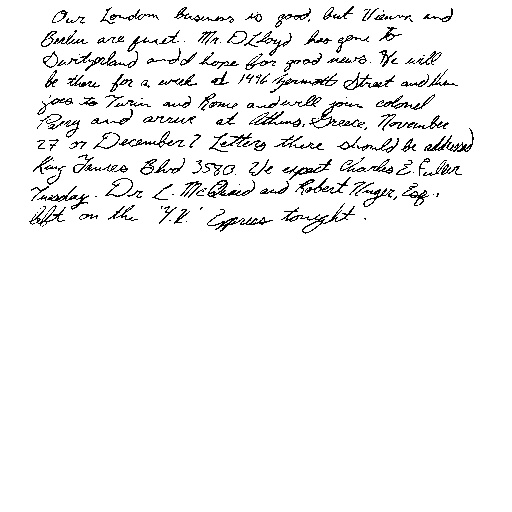 Our London business is good, but Vienna and
Berlin are quiet. Mr. D. Lloyd has gone to
Switzerland and I hope for good news. He will
be there for a week at 1496 Zermott Street and then
goes to Turin and Rome and will join colonel
Parry and arrive at Athens, Greece, November
27 or December 2. Letters there should be addressed
King James Blvd 3580. We expect Charles E. Fuller
Tuesday. Dr L. McQuaid and Robert Unger, Esq.,
left on the 'Y.X.' Express tonight.